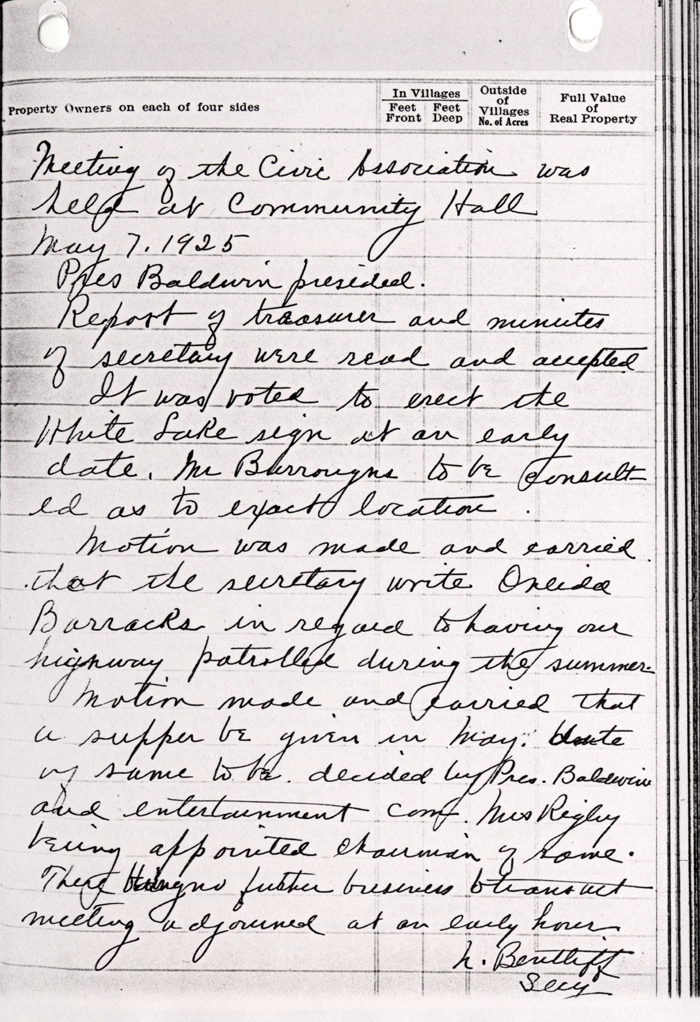 Property Owners on each of four sides
In Villages
Feet Front
Feet Deep
Outside of Villages No. of Acres
Full Value of Real Property
Meeting of the Civic Association was
held at Community Hall
May 7. 1925
Pres Baldwin presided.
Report of treasurer and minutes
of secretary were read and accepted
It was voted to erect the
White Lake sign at an early
date. Mr Burroughs to be consult-
ed as to exact location.
Motion was made and carried
that the secretary write Oneida
Barracks in regard to having our
highway patrolled during the summer.
Motion made and carried that
a supper be given in May. Date
of same to be decided by Pres. Baldwin
and entertainment com. Mrs Rigby
being appointed chairman of same.
There being no further business to transact
meeting adjourned at an early hour
Secy